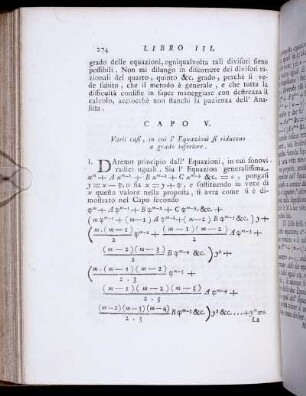 274 LIBRO III.
grado delle equazioni, ogniqualvolta tali divisori sieno
possibili. Non mi dilungo in discorrere dei divisori ra-
zionali del quarto, quinto &c. grado, perchè si ve-
de subito, che il metodo è generale, e che tutta la
difficoltà consiste in saper maneggiare con destrezza il
calcolo, acciocchè non stanchi la pazienza dell' Ana-
lista.
CAPO V.
Varii casi, in cui l' Equazioni si riducono
a grado inferiore.
I. Daremo principio dall' Equazioni, in cui sonovi
radici uguali. Sia l' Equazion generalissima,
x^m + A x^{m-1} + B x^{m-2} + C x^{m-3} &c. = 0, pongasi
y = x - φ, o sia x = y + φ, e sostituendo in vece di
x questo valore nella proposta, si avrà come si è di-
mostrato nel Capo secondo
φ^m + A φ^{m-1} + B φ^{m-2} + C φ^{m-3} &c. +
(m φ^{m-1} + (m-1) A φ^{m-2} + (m-2) B φ^{m-3} &c.) y +
(m.(m-1)/2 φ^{m-2} + (m-1)(m-2)/2 A φ^{m-3} +
(m-2)(m-3)/2 B φ^{m-4} &c.) y² +
(m.(m-1)(m-2)/2.3 φ^{m-3} +
(m-1)(m-2)(m-3)/2.3 A φ^{m-4} +
(m-2)(m-3)(m-4)/2.3 B φ^{m-5} &c.) y³ &c. .... + y^m = 0.
La